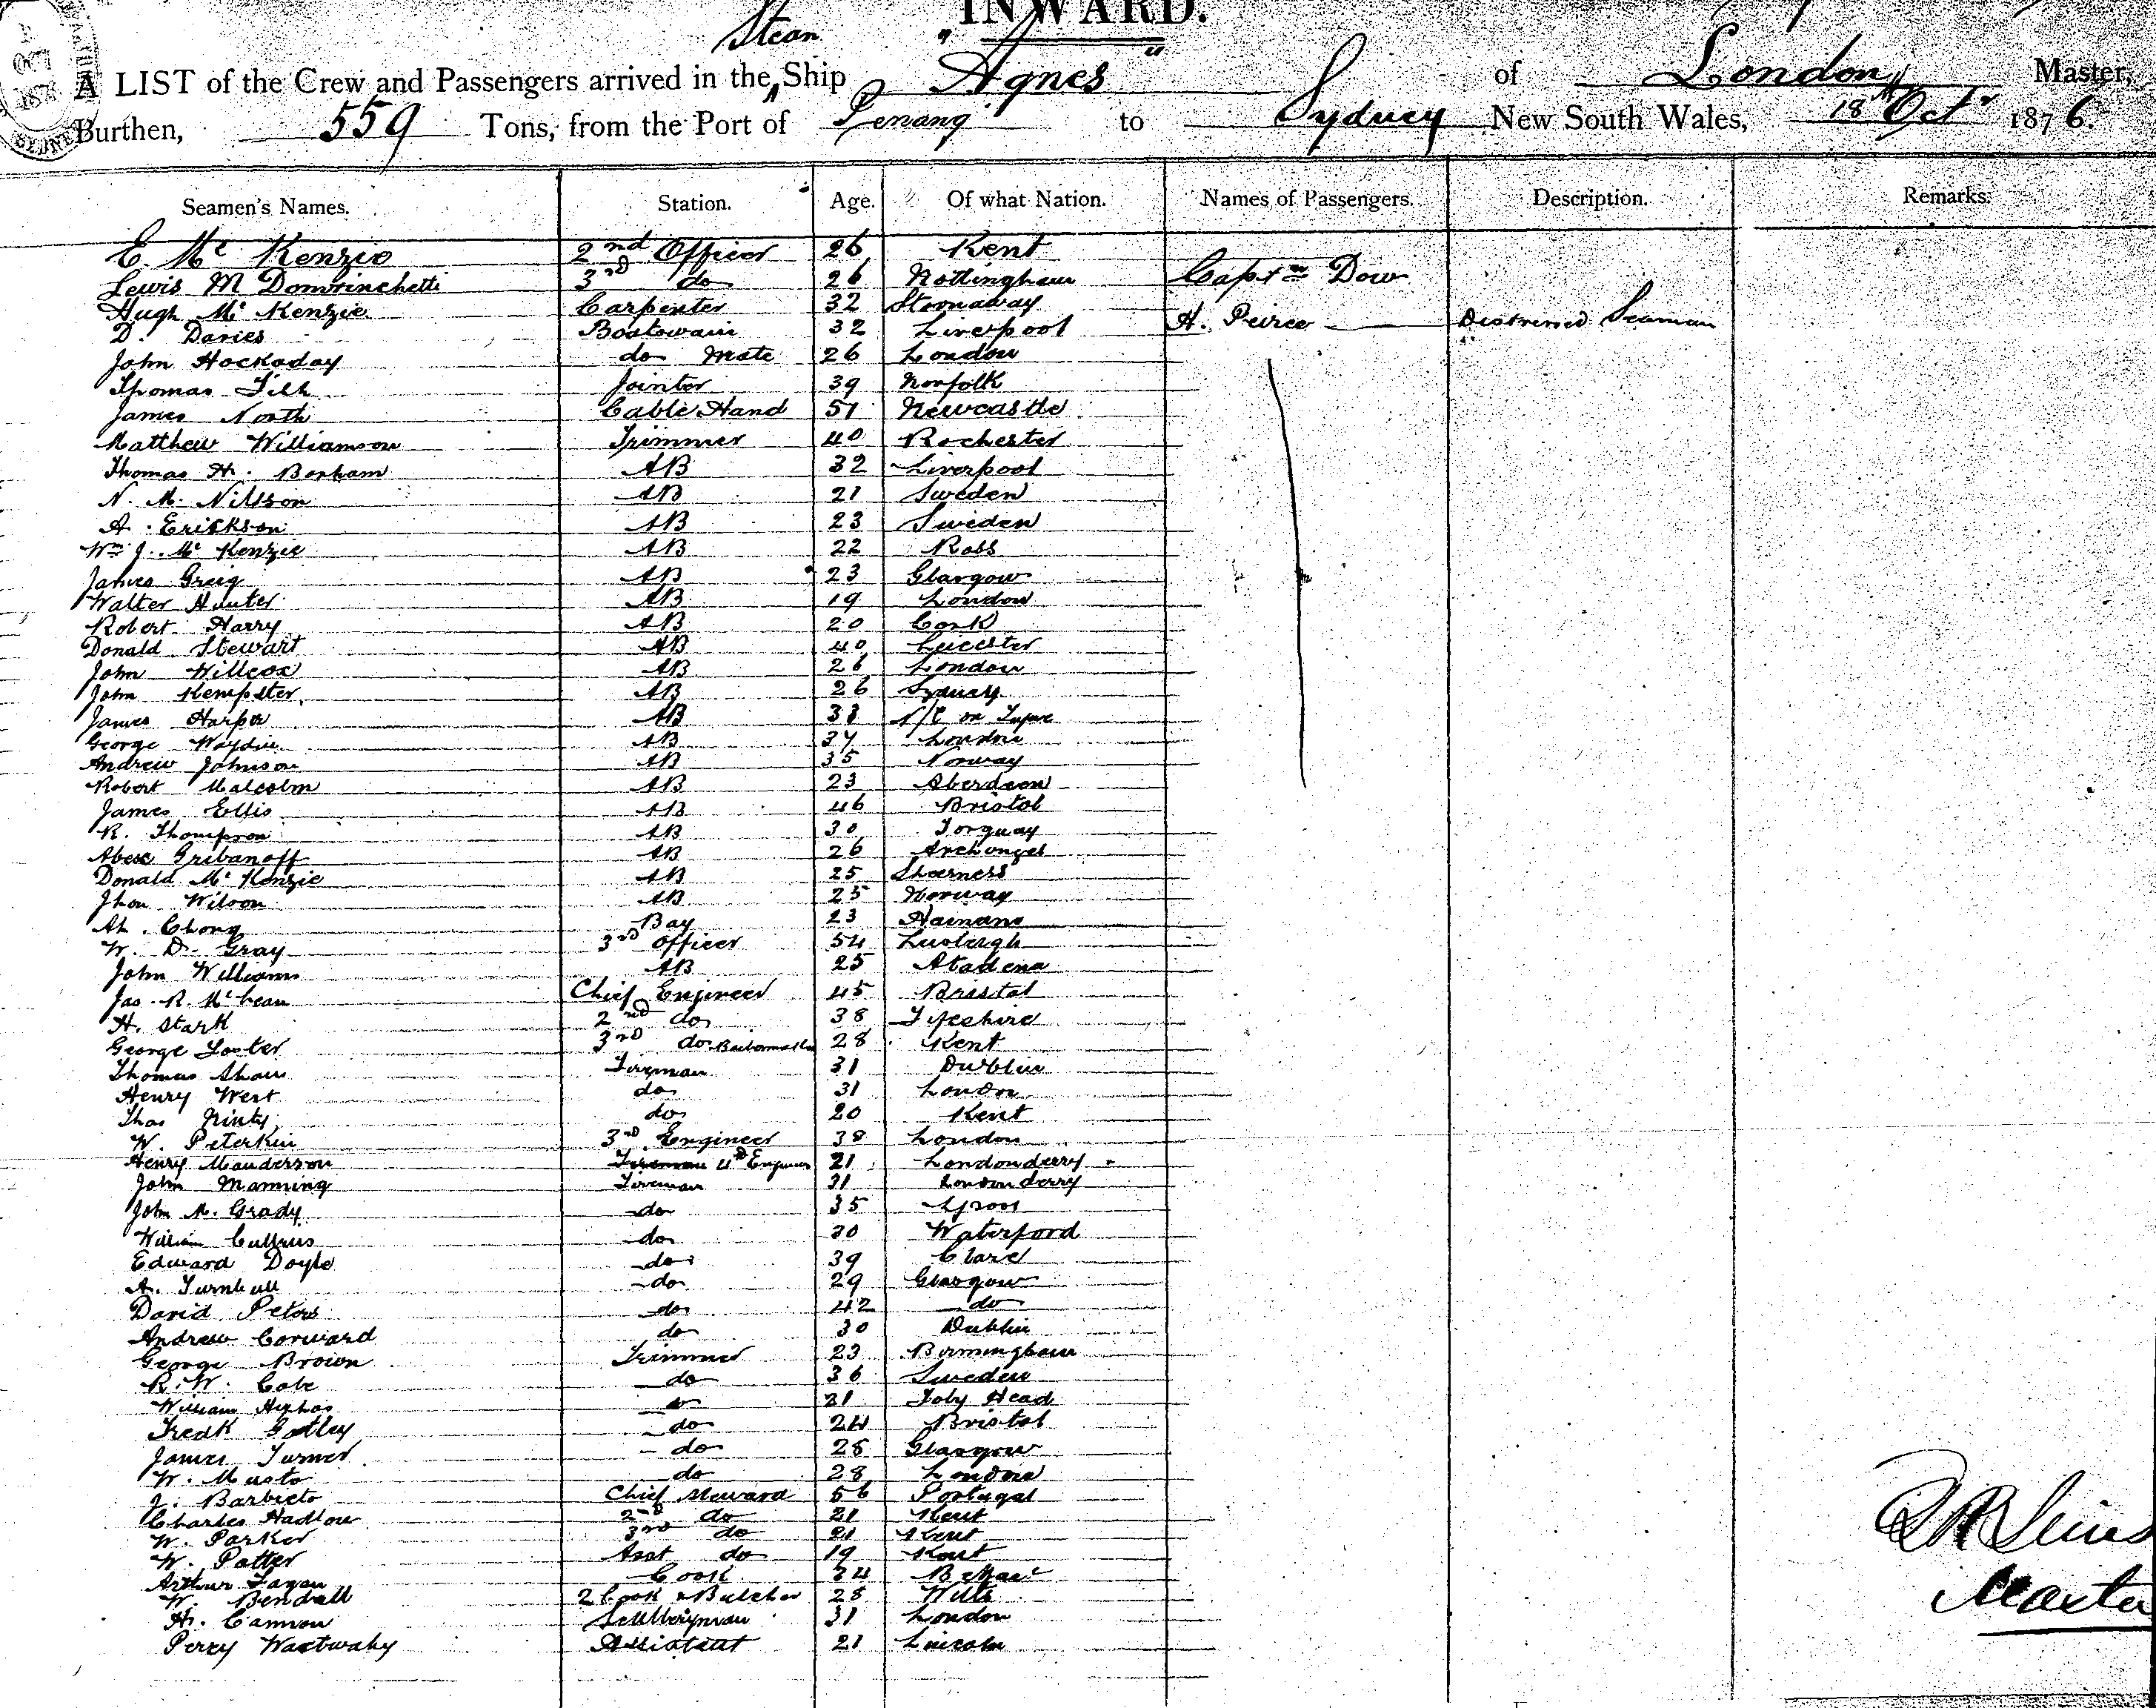 INWARD.
Steam
A LIST of the Crew and Passengers arrived in the Ship "Agnes" of London Master,
Burthen, 559 Tons, from the Port of Penang to Sydney New South Wales, 18th Octr 1876.
Seamen's Names. Station. Age. Of what Nation. Names of Passengers. Description. Remarks.
E. Mc Kenzie 2nd Officer 26 Kent
Lewis M 3rd do 26 Nottingham Captn Dow
Hugh Mc Kenzie Carpenter 32 Stornaway
D. Davies Boatswain 32 Liverpool H. Peirce Distressed Seaman
John Hockaday do Mate 26 London
Thomas Jointer 39 Norfolk
James North Cable Hand 51 Newcastle
Matthew Williamson Trimmer 40 Rochester
Thomas H. Bonham AB 32 Liverpool
N. M. Nilsson AB 21 Sweden
A. Erickson AB 23 Sweden
Wm J. Mc Kenzie AB 22 Ross
James Greig AB 23 Glasgow
Walter Hunter AB 19 London
Robert Harry AB 20 Cork
Donald Stewart AB 40 Leicester
John Willcox AB 26 London
John Kempster AB 26 Sydney
James Harper AB 33 N/C on Tyne
George AB 37 London
Andrew Johnson AB 35 Norway
Robert Malcolm AB 23 Aberdeen
James Ellis AB 46 Bristol
R. Thompson AB 30 Torquay
Gribanoff AB 26 Archangel
Donald Mc Kenzie AB 25 Sheerness
Jhon Wilson AB 25 Norway
Ah. Chong Boy 23 Hainan
W. D. Gray 3rd Officer 54
John Williams AB 25
Jas. R. Mcbean Chief Engineer 45 Bristol
H. Stark 2nd do 38 Fifeshire
George Foster 3rd do 28 Kent
Thomas Shaw Fireman 31 Dublin
Henry West do 31 London
Thos do 20 Kent
W. Peterkin 3rd Engineer 38 London
Henry Manderson Fireman 4th Engineer 21 Londonderry
John Manning Fireman 31 Londonderry
John M. Grady do 35
William Cullens do 30 Waterford
Edward Doyle do 39 Clare
A. Turnbull do 29 Glasgow
David Peters do 42 do
Andrew Corward do 30 Dublin
George Brown Trimmer 23 Birmingham
R. W. Cole do 36 Sweden
William do 21 Holy Head
Fredk Gatley do 24 Bristol
James Turner do 25 Glasgow
W. Musto do 28 London
J. Barbieto Chief Steward 56 Portugal
Charles Hadlow 2nd do 21 Kent
W. Parker 3rd do 21 Kent
W. Potter Asst do 19 Kent
Arthur Fagan Cook 34
W. Bendall 2 Cook & Butcher 25 Wilts
H. Camron 31 London
Percy Assistant 21 Lincoln
Master